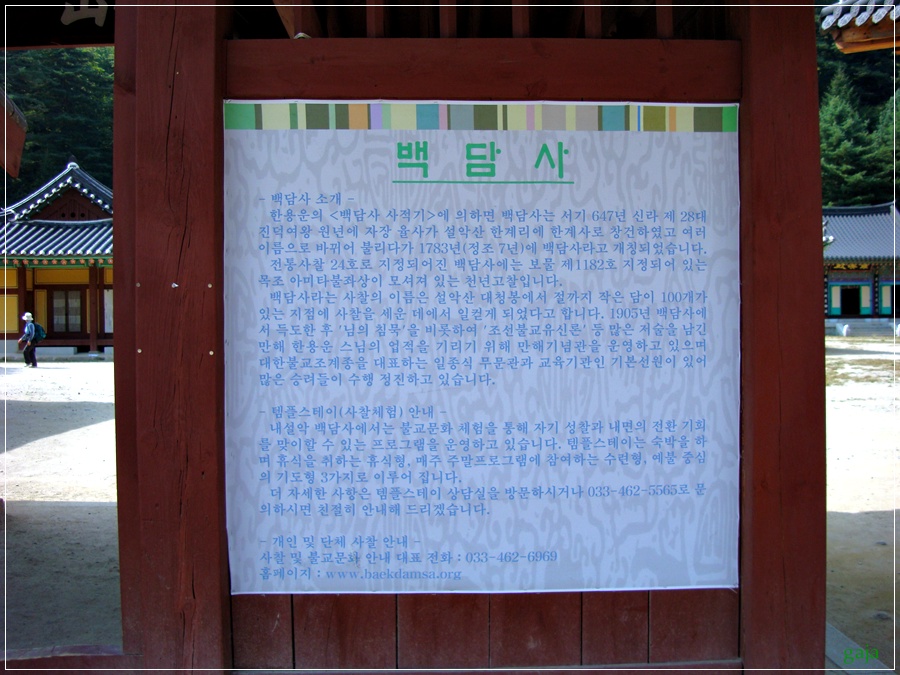 백 담 사
- 백담사 소개 -
한용운의 <백담사 사적기>에 의하면 백담사는 서기 647년 신라 제 28대
진덕여왕 원년에 자장 율사가 설악산 한계리에 한계사로 창건하였고 여러
이름으로 바뀌어 불리다가 1783년(정조 7년)에 백담사라고 개칭되었습니다.
전통사찰 24호로 지정되어진 백담사에는 보물 제1182호 지정되어 있는
목조 아미타불좌상이 모셔져 있는 천년고찰입니다.
백담사라는 사찰의 이름은 설악산 대청봉에서 절까지 작은 담이 100개가
있는 지점에 사찰을 세운 데에서 일컫게 되었다고 합니다. 1905년 백담사에
서 득도한 후 '님의 침묵'을 비롯하여 '조선불교유신론' 등 많은 저술을 남긴
만해 한용운 스님의 업적을 기리기 위해 만해기념관을 운영하고 있으며
대한불교조계종을 대표하는 일종식 무문관과 교육기관인 기본선원이 있어
많은 승려들이 수행 정진하고 있습니다.
- 템플스테이(사찰체험) 안내 -
내설악 백담사에서는 불교문화 체험을 통해 자기 성찰과 내면의 전환 기회
를 맞이할 수 있는 프로그램을 운영하고 있습니다. 템플스테이는 숙박을 하
며 휴식을 취하는 휴식형, 매주 주말프로그램에 참여하는 수련형, 예불 중심
의 기도형 3가지로 이루어 집니다.
더 자세한 사항은 템플스테이 상담실을 방문하시거나 033-462-5565로 문
의하시면 친절히 안내해 드리겠습니다.
- 개인 및 단체 사찰 안내 -
사찰 및 불교문화 안내 대표 전화 : 033-462-6969
홈페이지 : www.baekdamsa.org